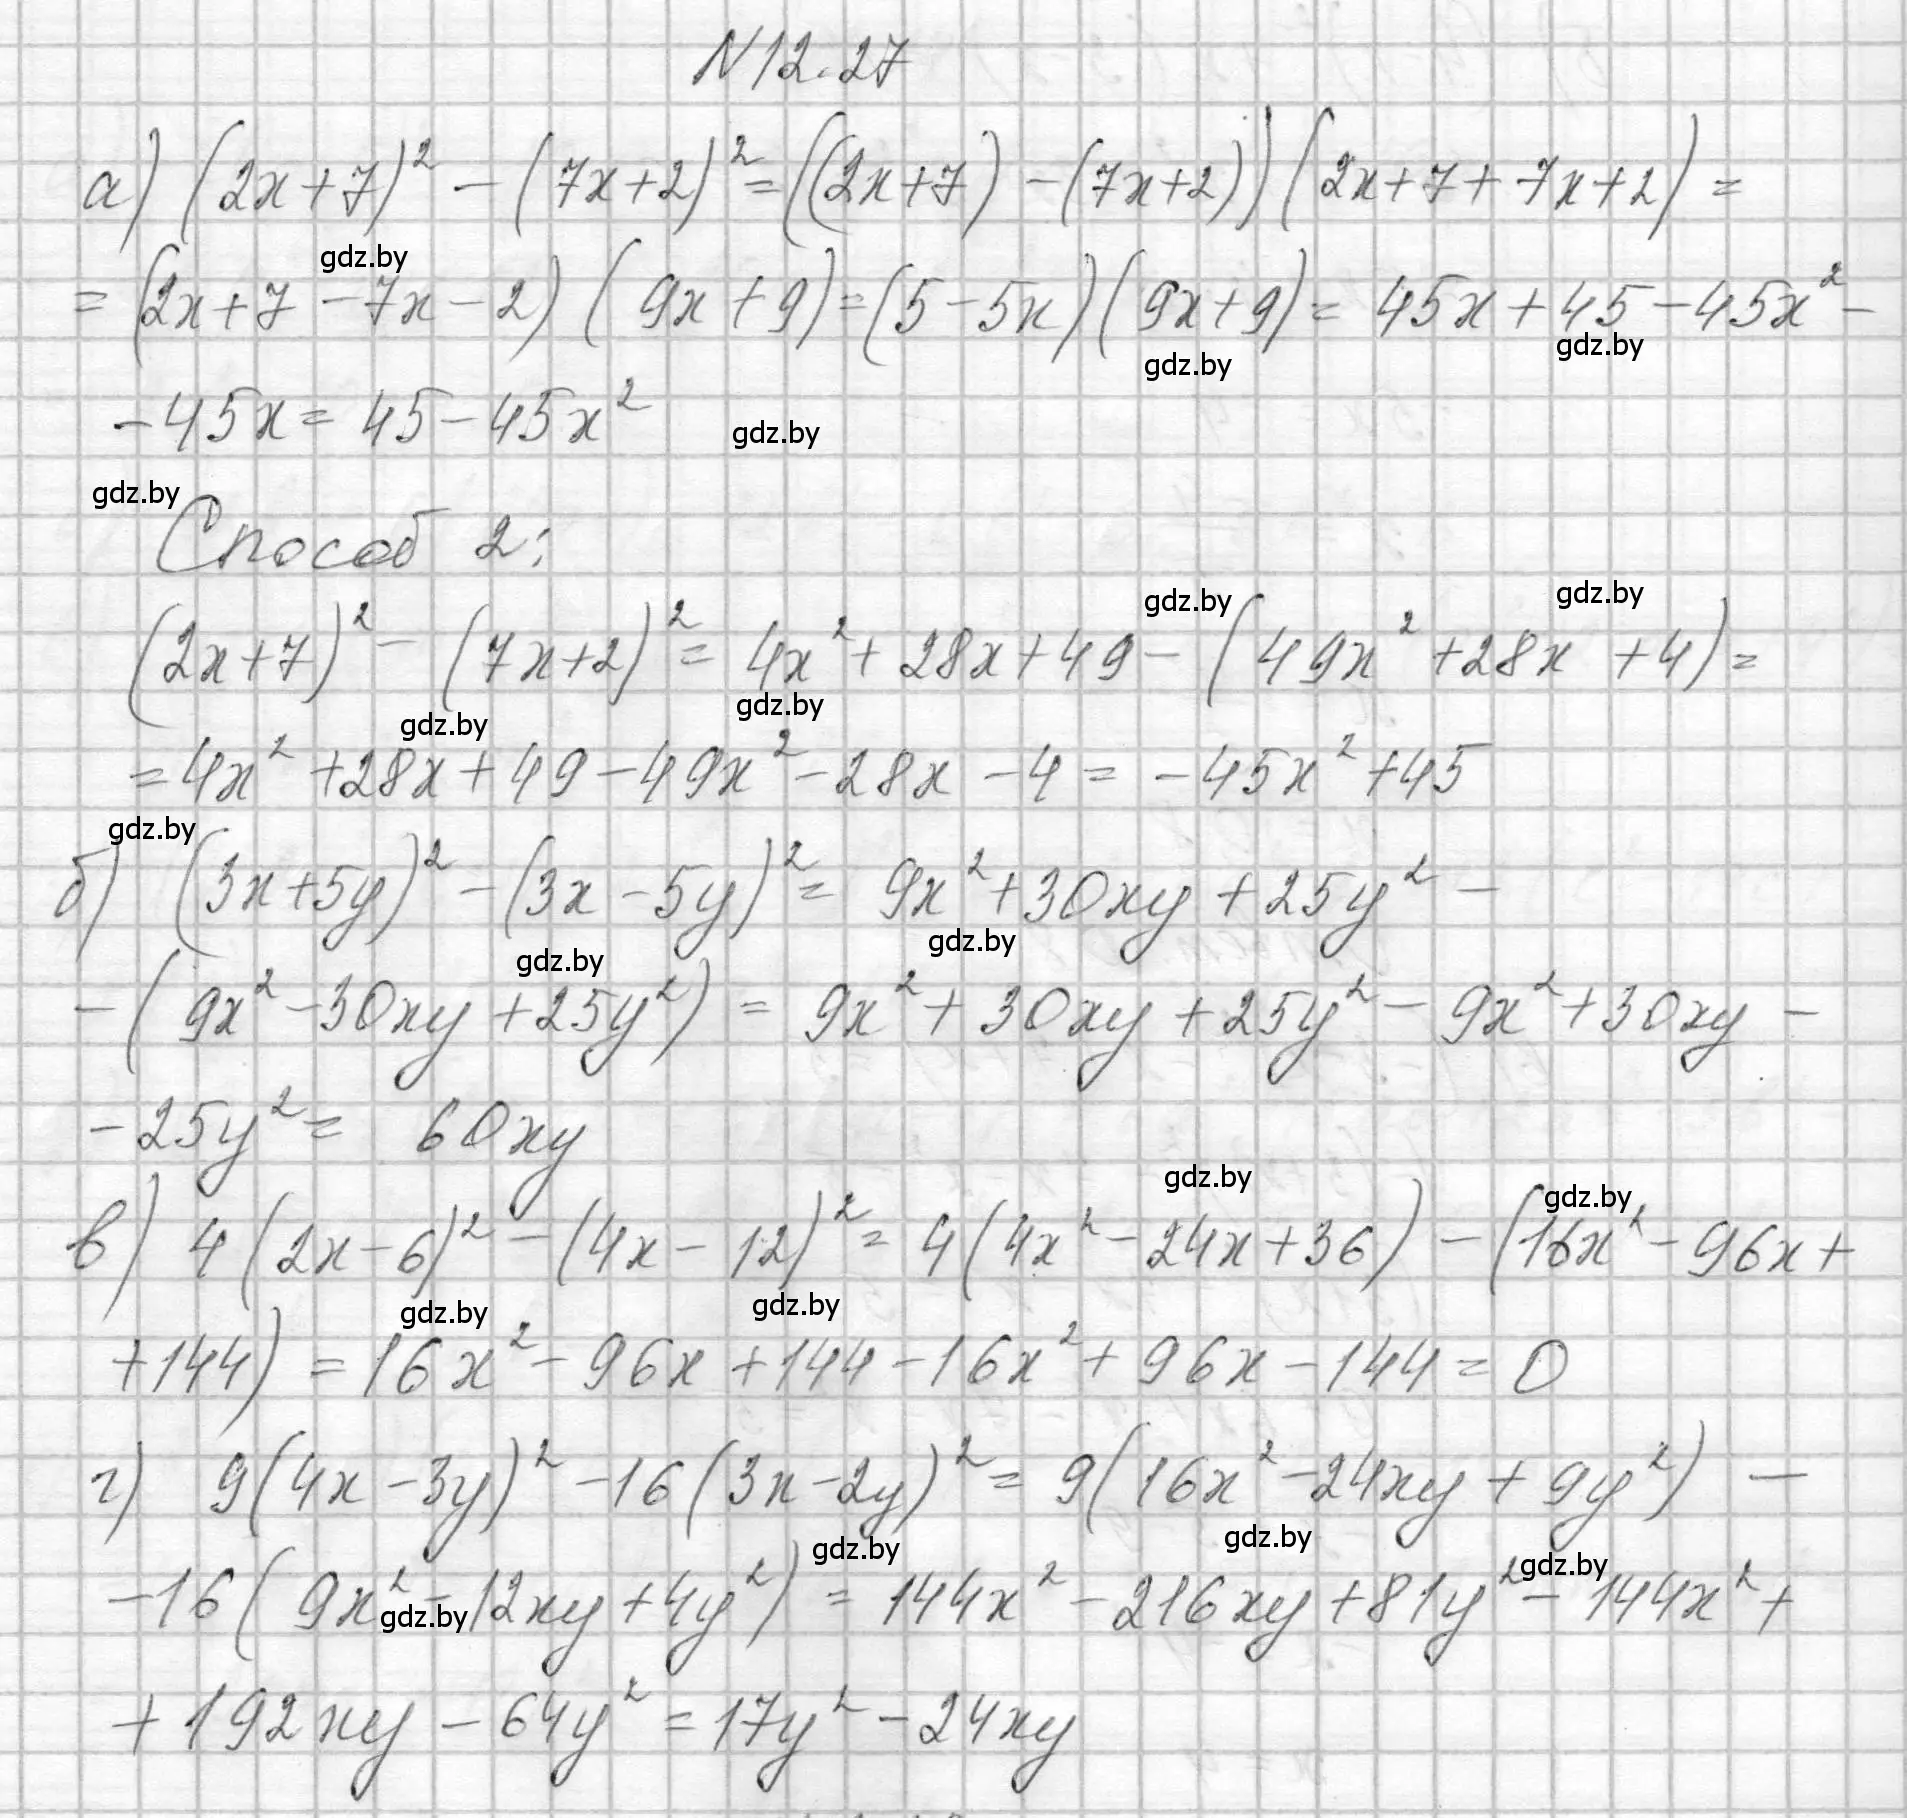 N12.27
а) (2x+7)² - (7x+2)² = ((2x+7) - (7x+2))(2x+7+7x+2) =
gdz.by
= (2x+7-7x-2)(9x+9) = (5-5x)(9x+9) = 45x+45-45x² -
gdz.by gdz.by
-45x = 45-45x²
gdz.by
gdz.by
Способ 2:
gdz.by gdz.by
(2x+7)² - (7x+2)² = 4x²+28x+49 - (49x²+28x+4) =
gdz.by gdz.by
= 4x²+28x+49-49x²-28x-4 = -45x²+45
gdz.by
б) (3x+5y)² - (3x-5y)² = 9x²+30xy+25y² -
gdz.by gdz.by
- (9x²-30xy+25y²) = 9x²+30xy+25y²-9x²+30xy -
-25y² = 60xy
gdz.by gdz.by
в) 4(2x-6)² - (4x-12)² = 4(4x²-24x+36) - (16x²-96x+
gdz.by gdz.by
+144) = 16x²-96x+144-16x²+96x-144 = 0
г) 9(4x-3y)² - 16(3x-2y)² = 9(16x²-24xy+9y²) -
gdz.by gdz.by gdz.by
-16(9x²-12xy+4y²) = 144x²-216xy+81y²-144x²+
gdz.by
+192xy-64y² = 17y²-24xy